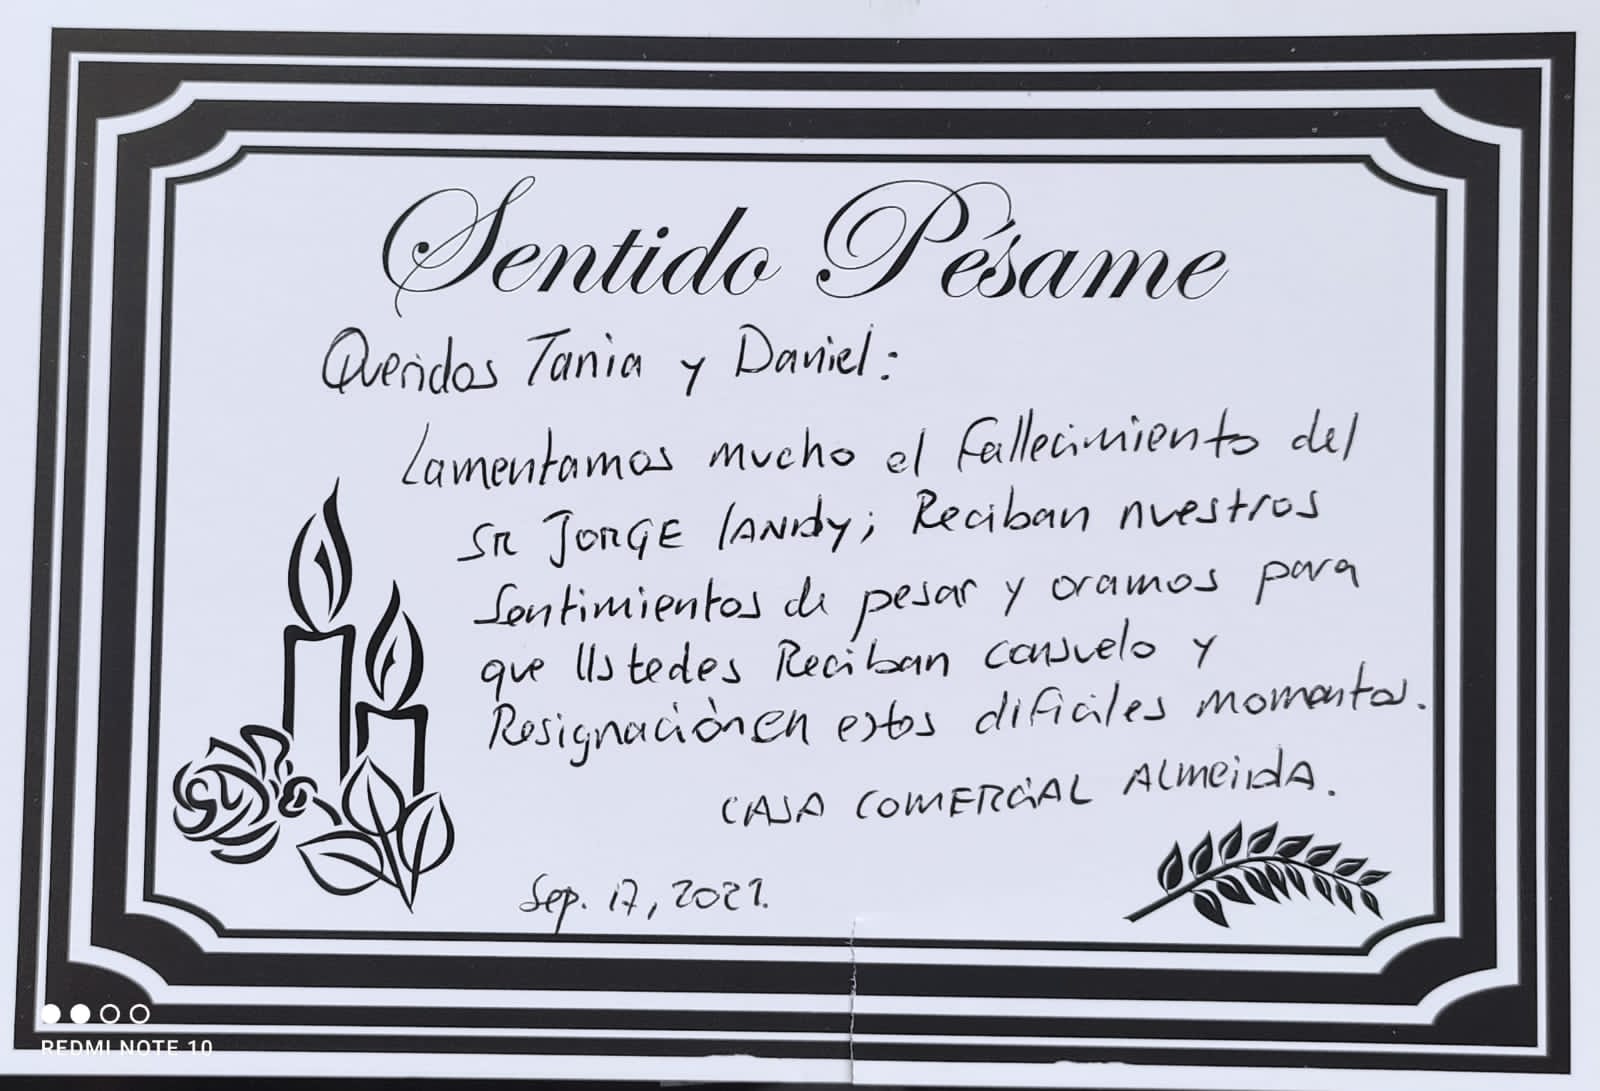 Sentido Pésame
Queridos Tania y Daniel:
Lamentamos mucho el fallecimiento del
SR JORGE; Reciban nuestros
Sentimientos de pesar y oramos para
que Ustedes Reciban consuelo y
Resignación en estos dificiles momentos.
CASA COMERCIAL ALMEIDA.
Sep. 17, 2021.
REDMI NOTE 10